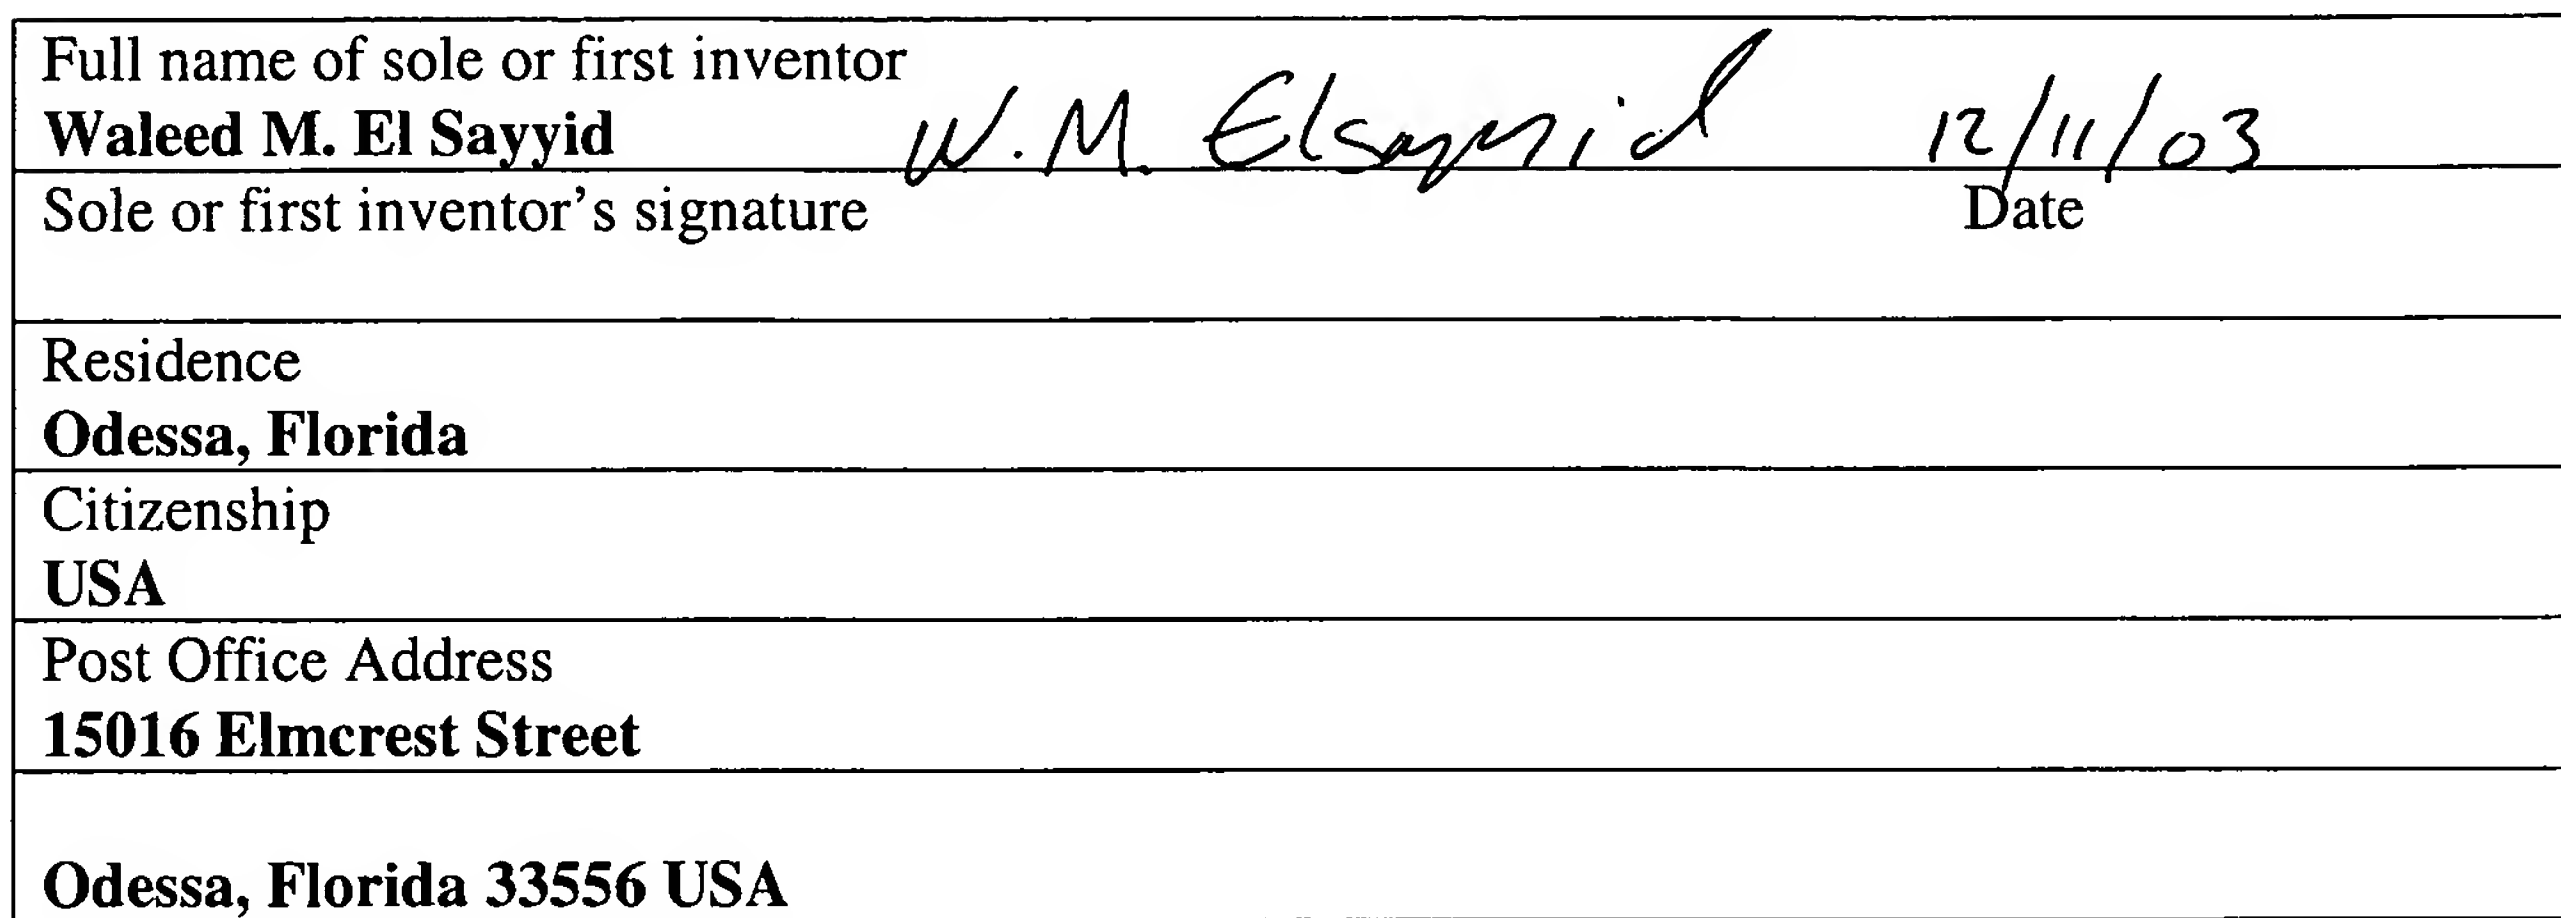 Full name of sole or first inventor
Waleed M. El Sayyid W. M. Elsayyid 12/11/03
Sole or first inventor's signature Date
Residence
Odessa, Florida
Citizenship
USA
Post Office Address
15016 Elmcrest Street
Odessa, Florida 33556 USA